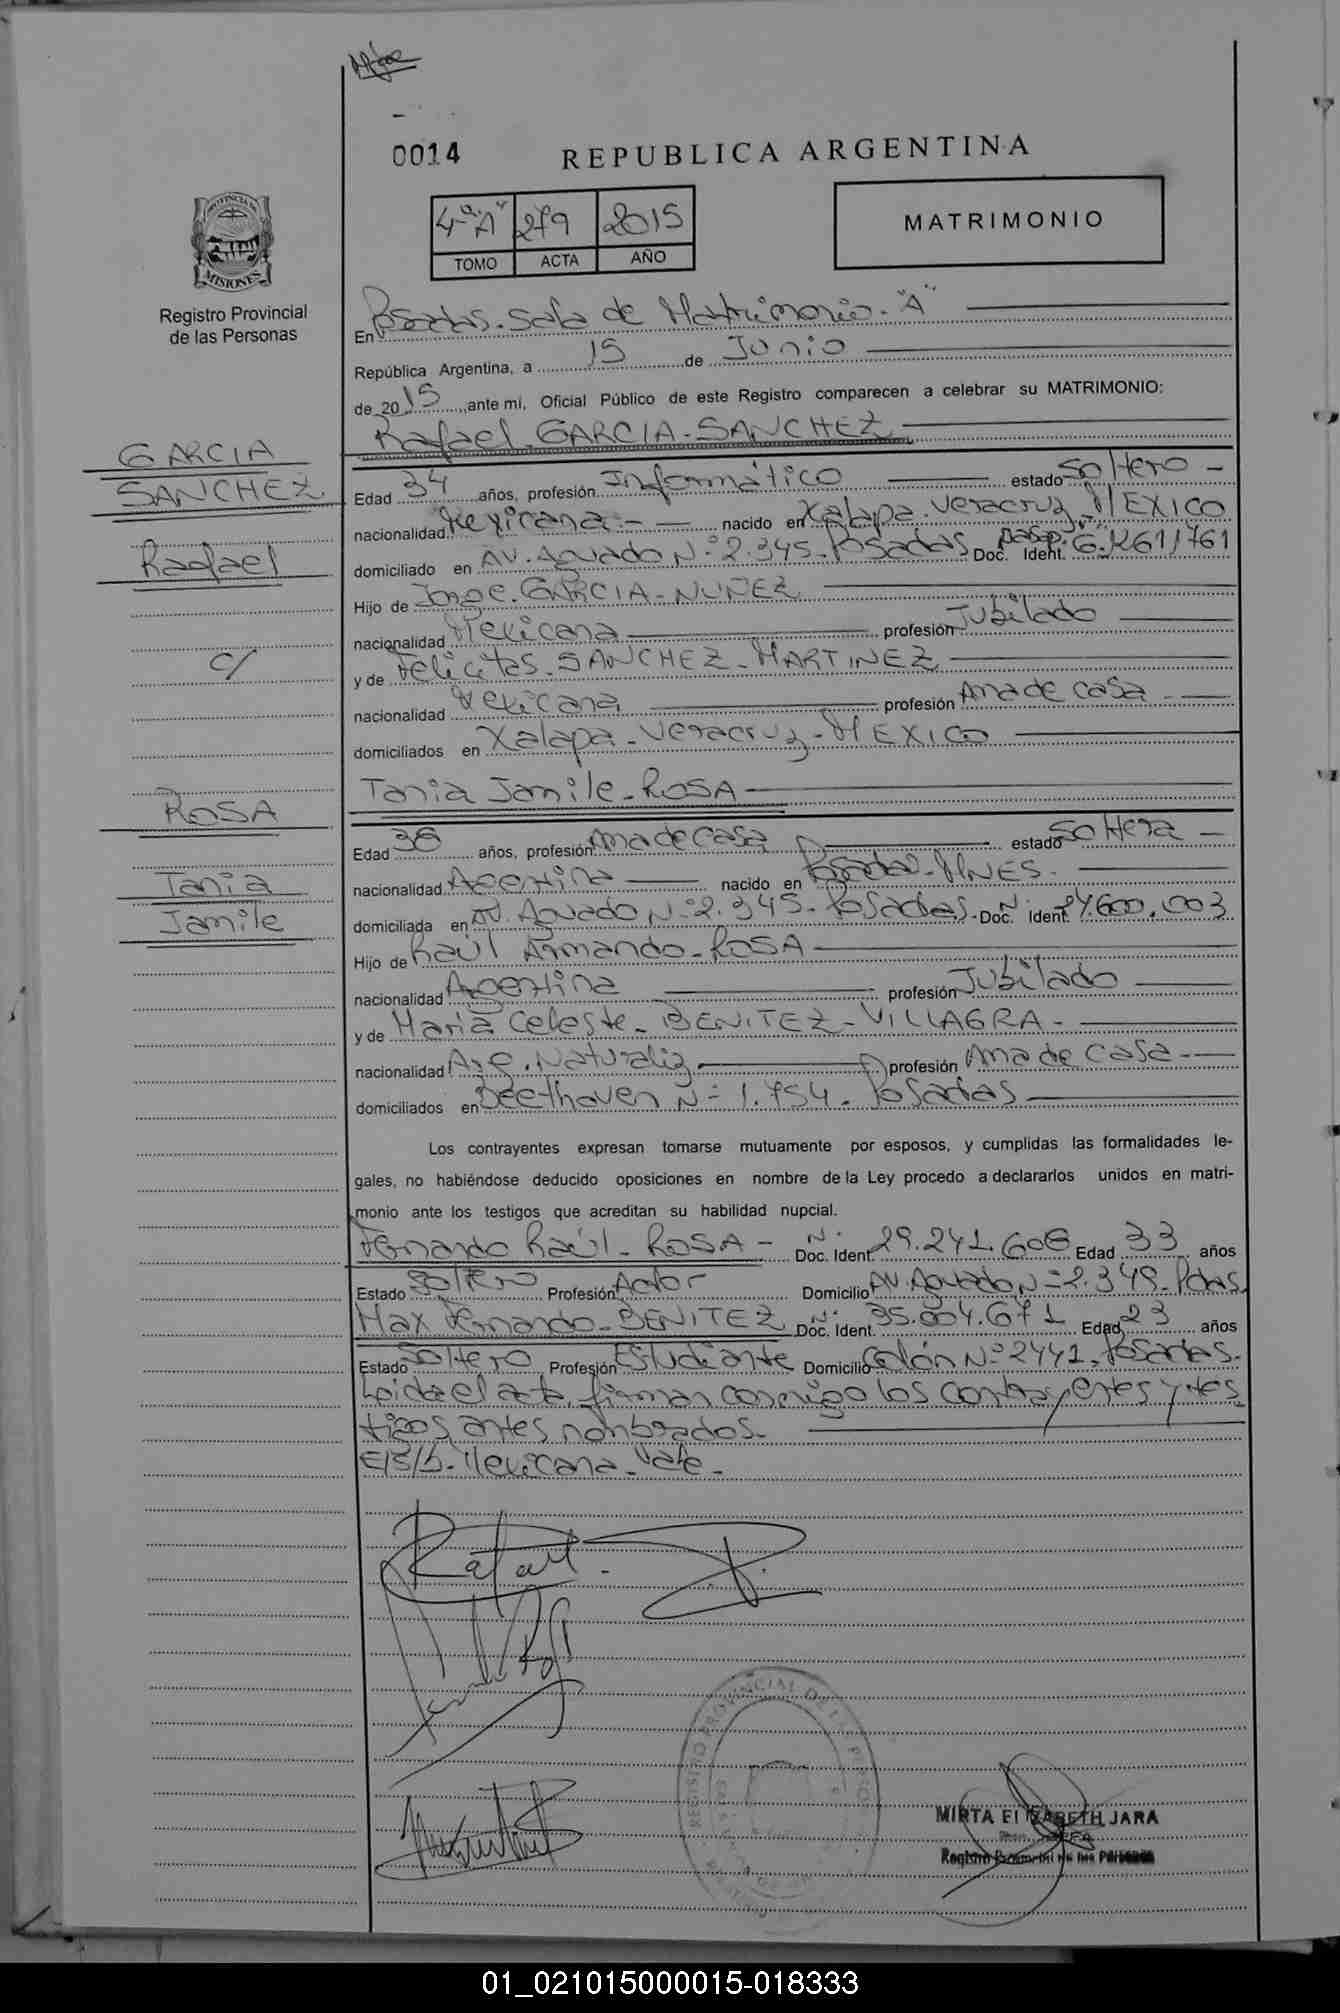 0014
REPUBLICA ARGENTINA
4º "A" 279 2015
TOMO ACTA AÑO
MATRIMONIO
PROVINCIA DE
MISIONES
Registro Provincial
de las Personas
En Posadas. Sala de Matrimonio. "A"
República Argentina, a 15 de Junio
de 2015, ante mi, Oficial Público de este Registro comparecen a celebrar su MATRIMONIO:
Rafael GARCIA-SANCHEZ
GARCIA
SANCHEZ
Rafael
c/
ROSA
Tania
Jamile
Edad 34 años, profesión Informático estado Soltero -
nacionalidad Mexicana - nacido en Xalapa-Veracruz-MEXICO
domiciliado en AV. Aguado Nº 2.345-Posadas Doc. Ident. Pasap.
Hijo de Jorge GARCIA-NUÑEZ
nacionalidad Mexicana profesión Jubilado
y de Felicitas SANCHEZ-MARTINEZ
nacionalidad Mexicana profesión Ama de casa -
domiciliados en Xalapa-Veracruz-MEXICO
Tania Jamile-ROSA
Edad años, profesión Ama de casa estado Soltera -
nacionalidad Argentina nacido en Posadas-MNES.
domiciliada en AV. Aguado Nº 2.345-Posadas. Doc. Ident. Nº 24.600.003
Hijo de Raúl Armando-ROSA
nacionalidad Argentina profesión Jubilado
y de María Celeste-BENITEZ-VILLAGRA-
nacionalidad Arg. Naturaliz profesión Ama de casa -
domiciliados en Beethoven Nº 1.754-Posadas
Los contrayentes expresan tomarse mutuamente por esposos, y cumplidas las formalidades le-
gales, no habiéndose deducido oposiciones en nombre de la Ley procedo a declararlos unidos en matri-
monio ante los testigos que acreditan su habilidad nupcial.
Fernando Raúl-ROSA - Doc. Ident. Nº 29.241.606 Edad 33 años
Estado Soltero Profesión Actor Domicilio AV. Aguado Nº 2.349-Pdas.
Max Fernando-BENITEZ Doc. Ident. Nº 35.004.671 Edad 23 años
Estado Soltero Profesión Estudiante Domicilio Colón Nº 2441, Posadas.
Leida el acta, firman conmigo los contrayentes y tes
tigos antes nombrados.
E/S/L. Mexicana. Vale.
Rafael
REGISTRO PROVINCIAL DE LAS PERSONAS
MIRTA ELIZABETH JARA
JEFA
Registro Provincial de las Personas
01_021015000015-018333